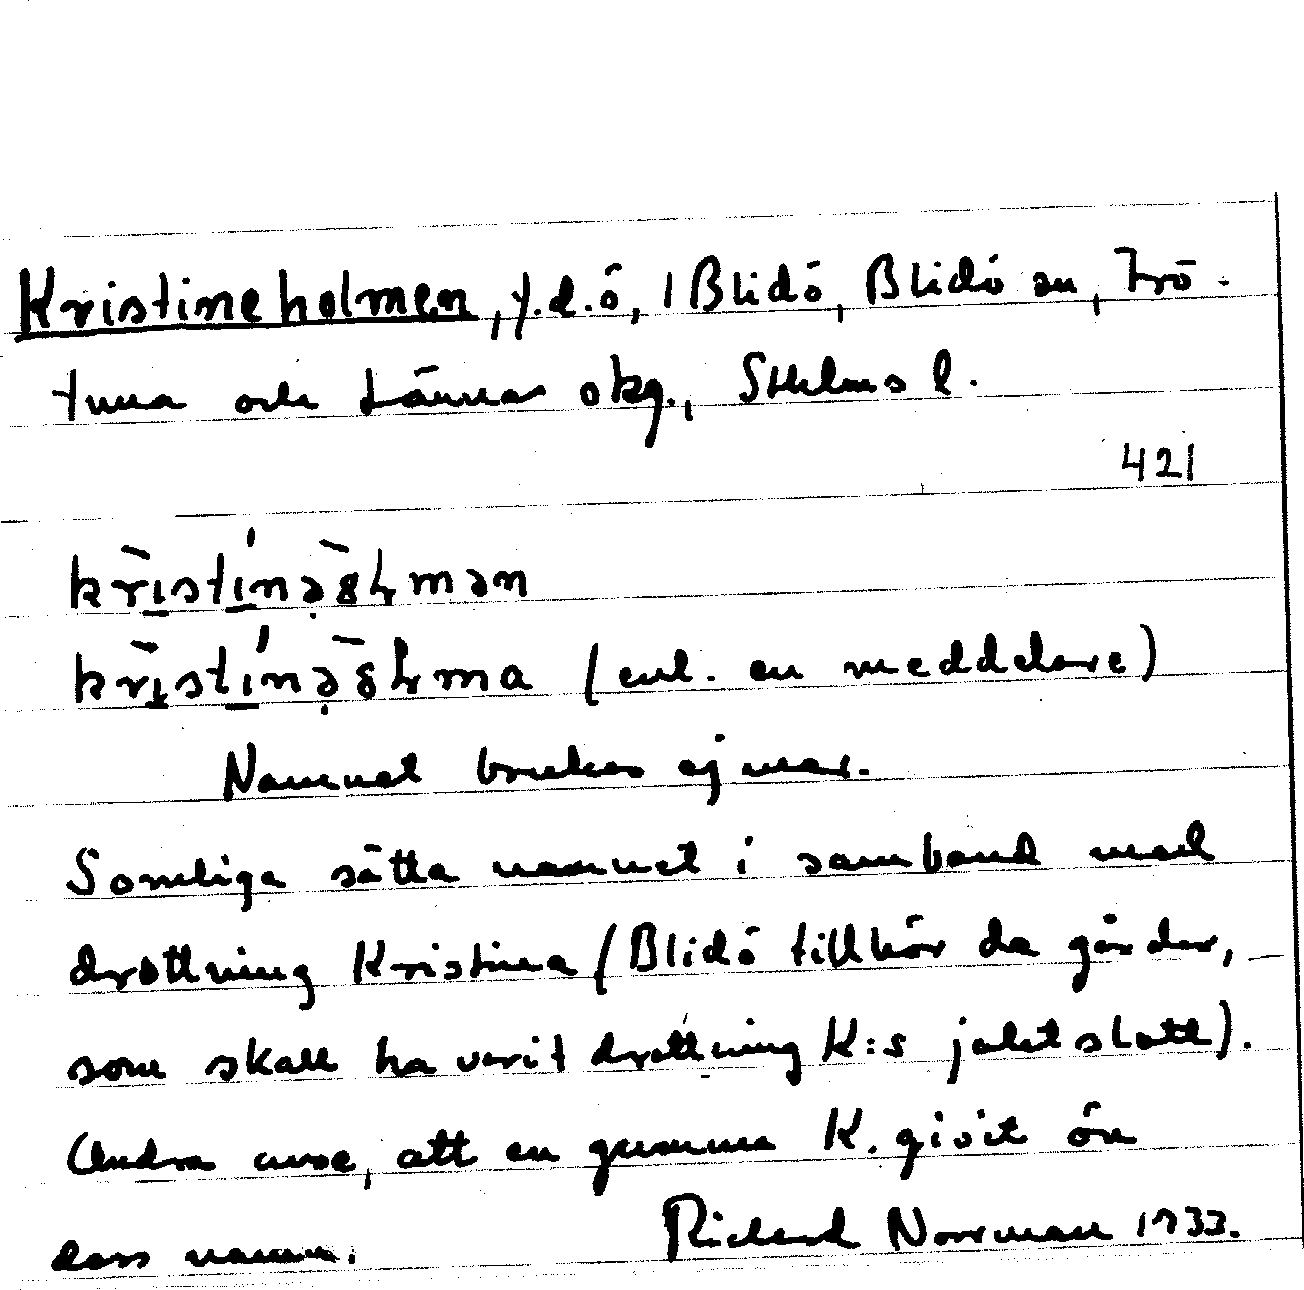 Kristineholmen, f.d.ö, i Blidö, Blidö sn, Frö-
tuna och Länna skg., Sthlms l.
421
kristinəȣɫmən
kristinəȣɫma (enl. en meddelare)
Namnet brukas ej mer.
Somliga sätta namnet i samband med
drottning Kristina (Blidö tillhör de gårdar,
som skall ha varit drottning K:s jaktslott).
Andra anse, att en gumma K. givit ön
dess namn.
Richard Norrman 1933.